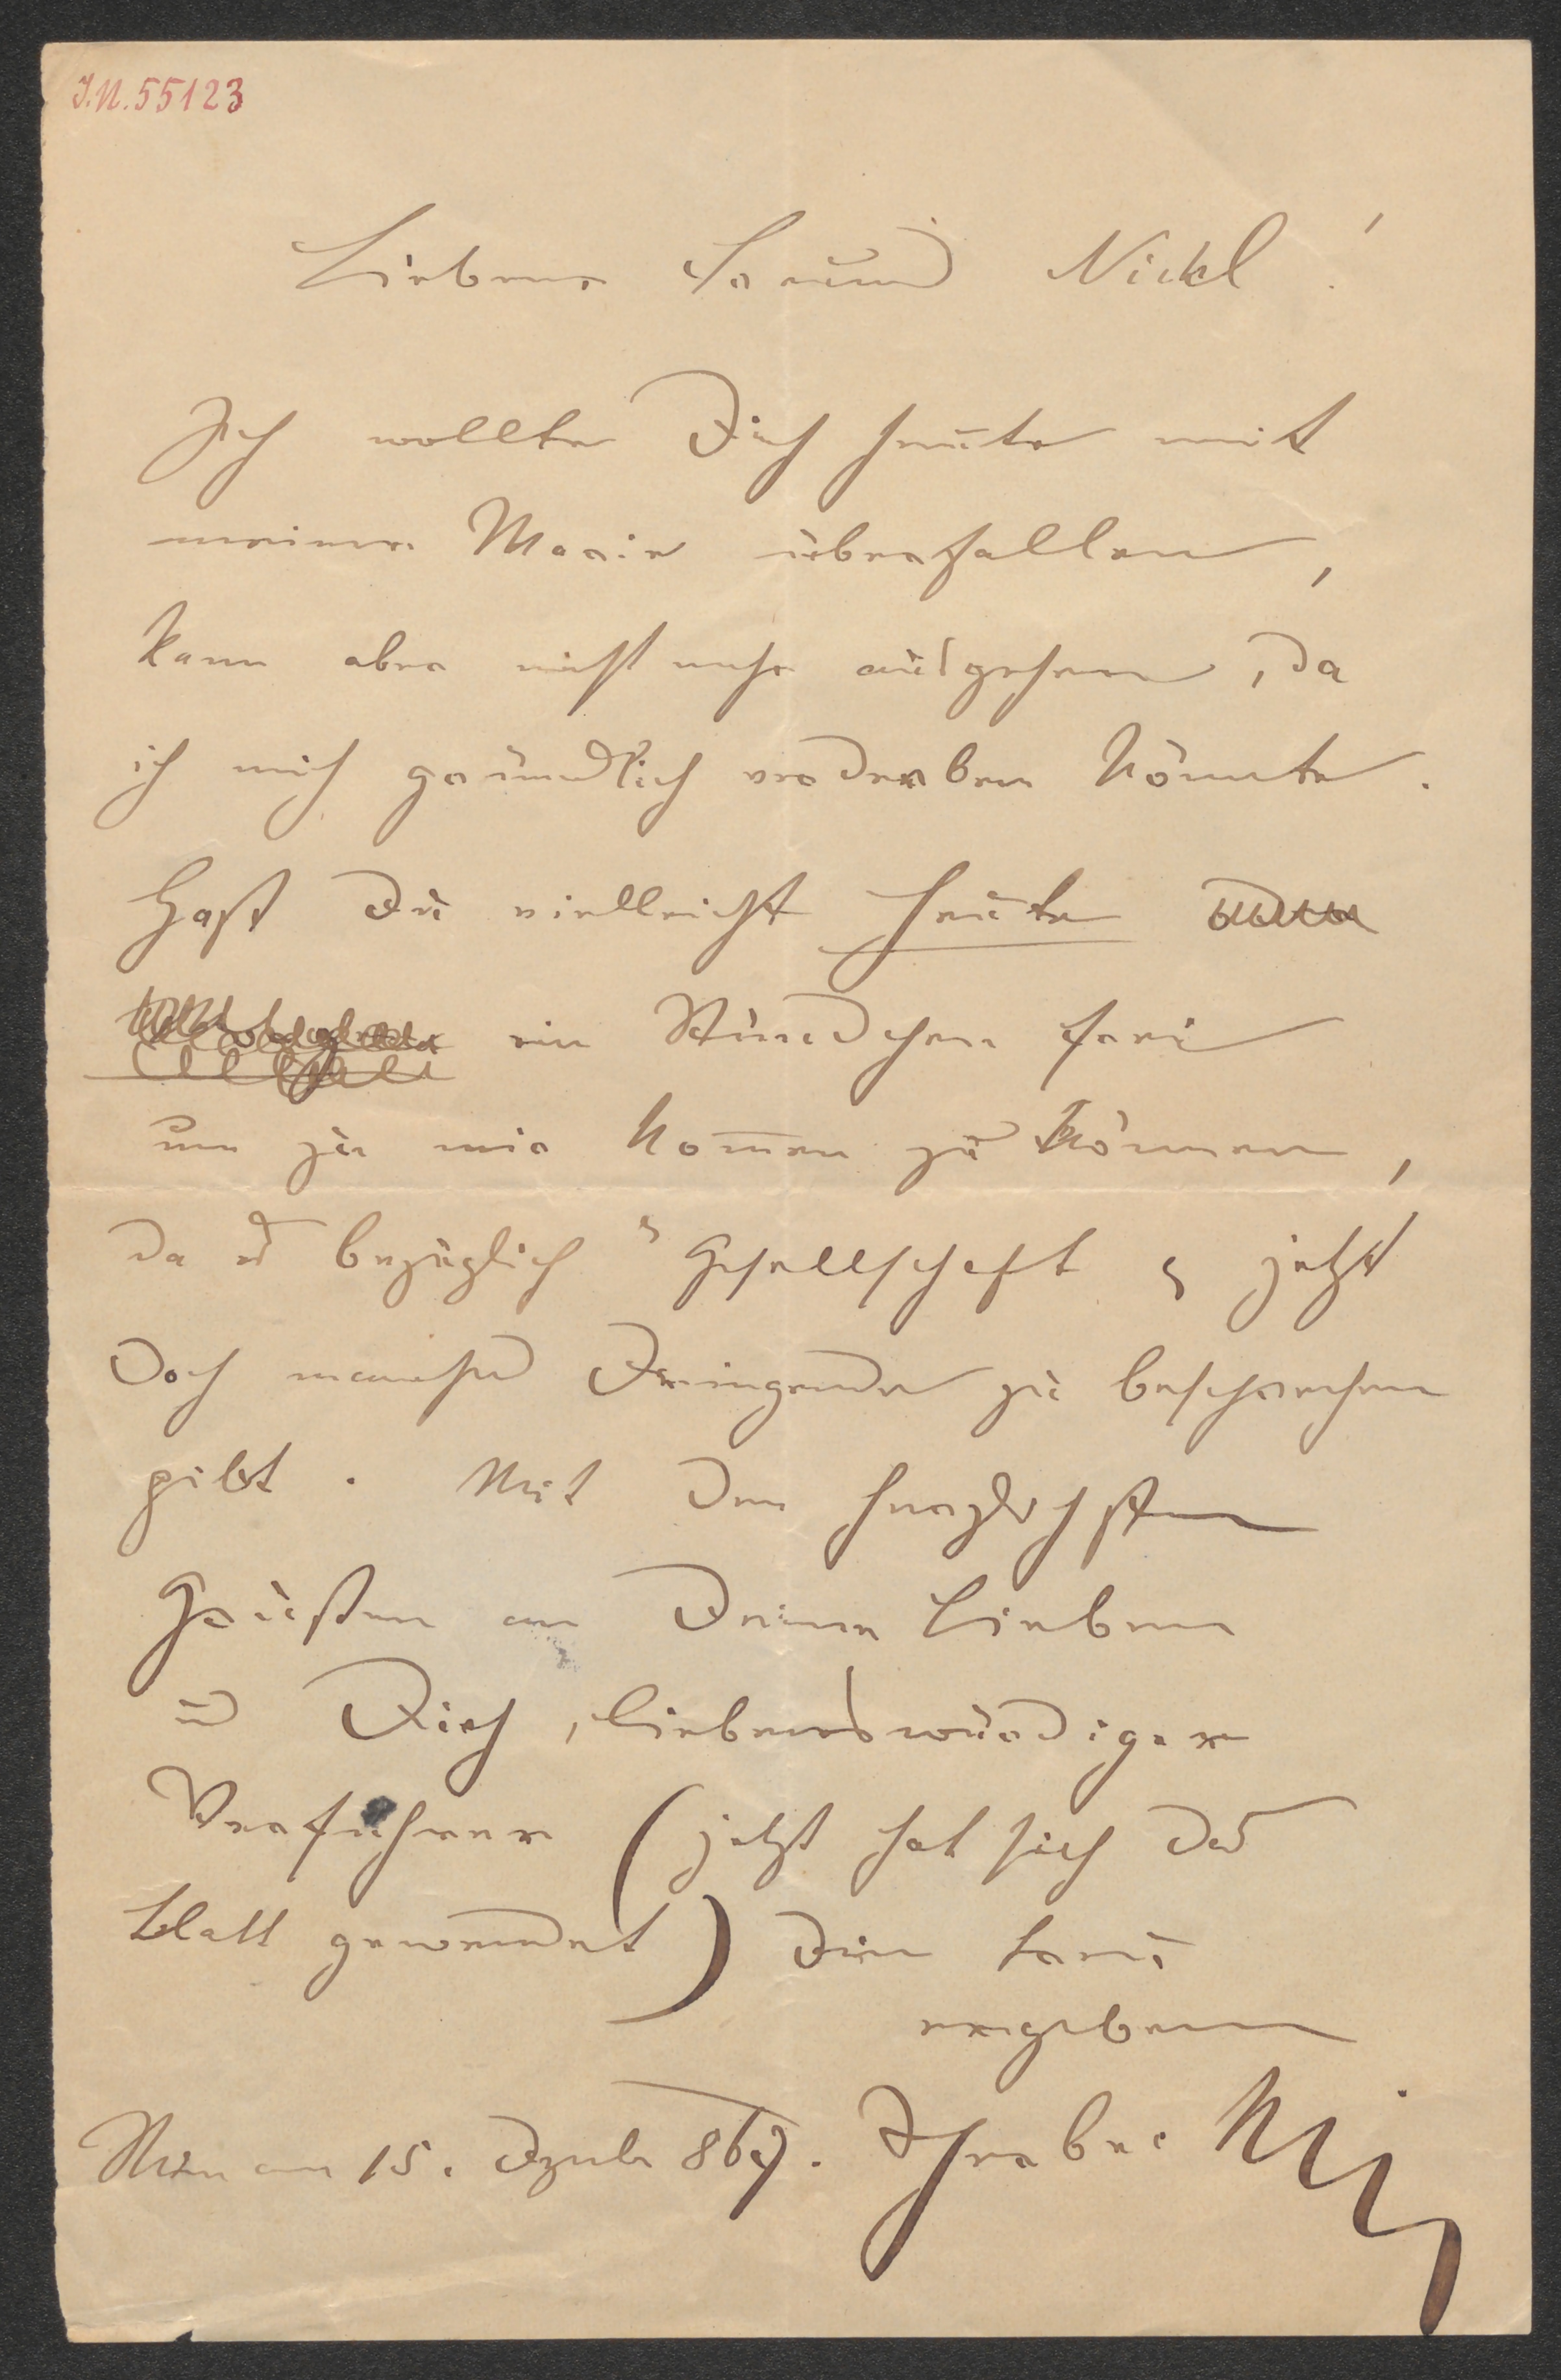 I.N. 55123
Lieber Freund Nickl!
Ich wollte Dich heute mit
meiner Marie überfallen,
kann aber nicht mehr ausgehen, da
ich mich gründlich verderben könnte.
Hast Du vielleicht heute
ein Stündchen frei
um zu mir kom̅en zu können,
da es bezüglich Gesellschaft jetzt
doch manches Dringende zu besprechen
gibt. Mit den herzlichsten
Grüßen an Deine Lieben
u̅d Dich, liebenswürdiger
Verführer (jetzt hat sich das
Blatt gewendet) Dein treu
ergebener
Wien am 15. Dzmbr 869.